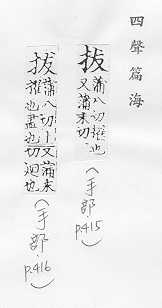 四聲篇海
拔
蒲八切擢也
又蒲末切
(手部 p.415)
拔
蒲八切又蒲末
擢也盡也切迴也
(手部.p.416)